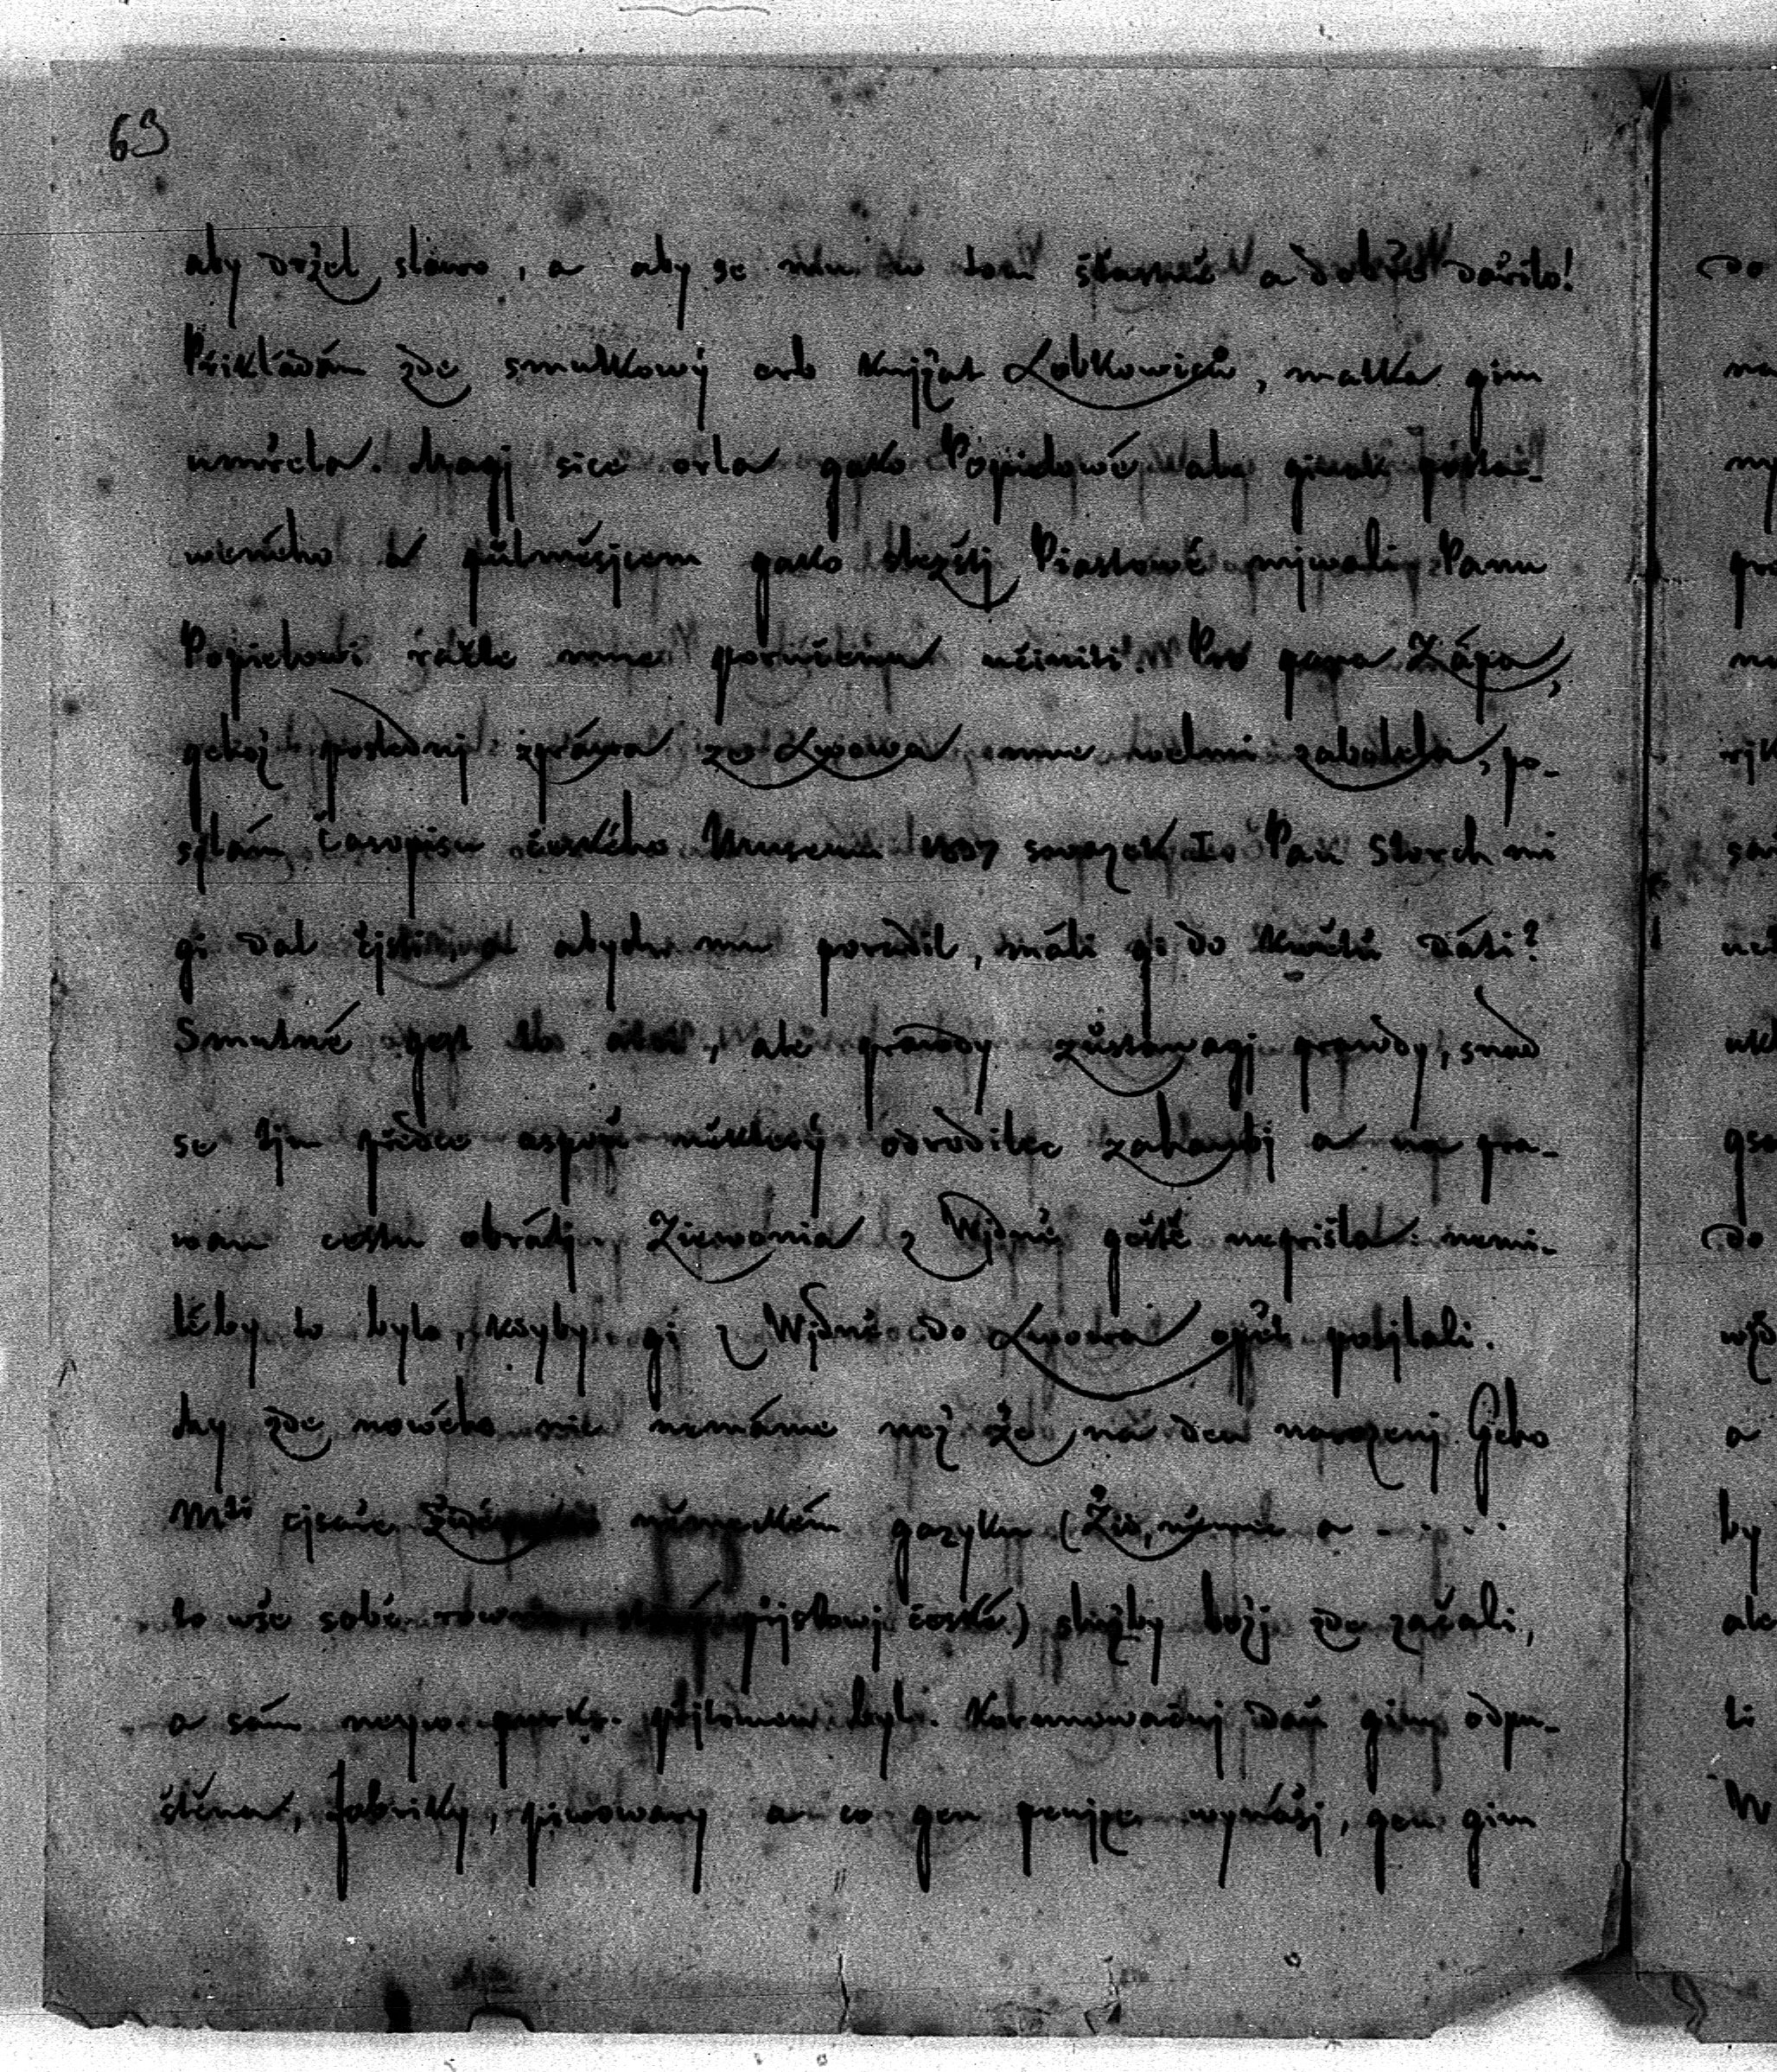 69
aby držel slowo, a aby se mu w tom šťastně a dobře dařilo!
Přikládám zde smutkowý orb Knjžat Lobkowiců, matka gim
umřela. Magj sice orla gako Popielowé ale ginak posta-
weného a půlměsjcem gako slezštj Piastowé mjwali. Panu
Popielowi račte mne poručena učiniti. Pro pana Zápa,
gehož poslednj zpráwa ze Lwowa mne welmi zabolela, po-
sýlám Časopisu českého Museum 1837 swazek I. Pan Storch mi
gi dal čjsti, a abych mu poradil, máli gi do Kwětů dáti?
Smutné gest to , ale prawdy zůstáwagj prawdy, snad
se tjm předce aspoň některý odrodilec zahanbj a na pra-
wau cestu obrátj. Ziewonia z Wjdně geště nepřišla: nemi-
léby to bylo, kdyby gi z Wjdně do Lwowa opět posjlali.
My zde nowého nic nemáme než že na den narozenj Geho
Mti cjsaře Židé německém gazyku (Žid, němec a . . . .
to wše sobě rowno, staré přjslowj české) služby božj zde začali,
a sám neyw. purkr. přjtomen byl. Kornunowačnj daň gim odpu-
štěna, fabriky, piwowary a co gen penjze wynášj, gen gim